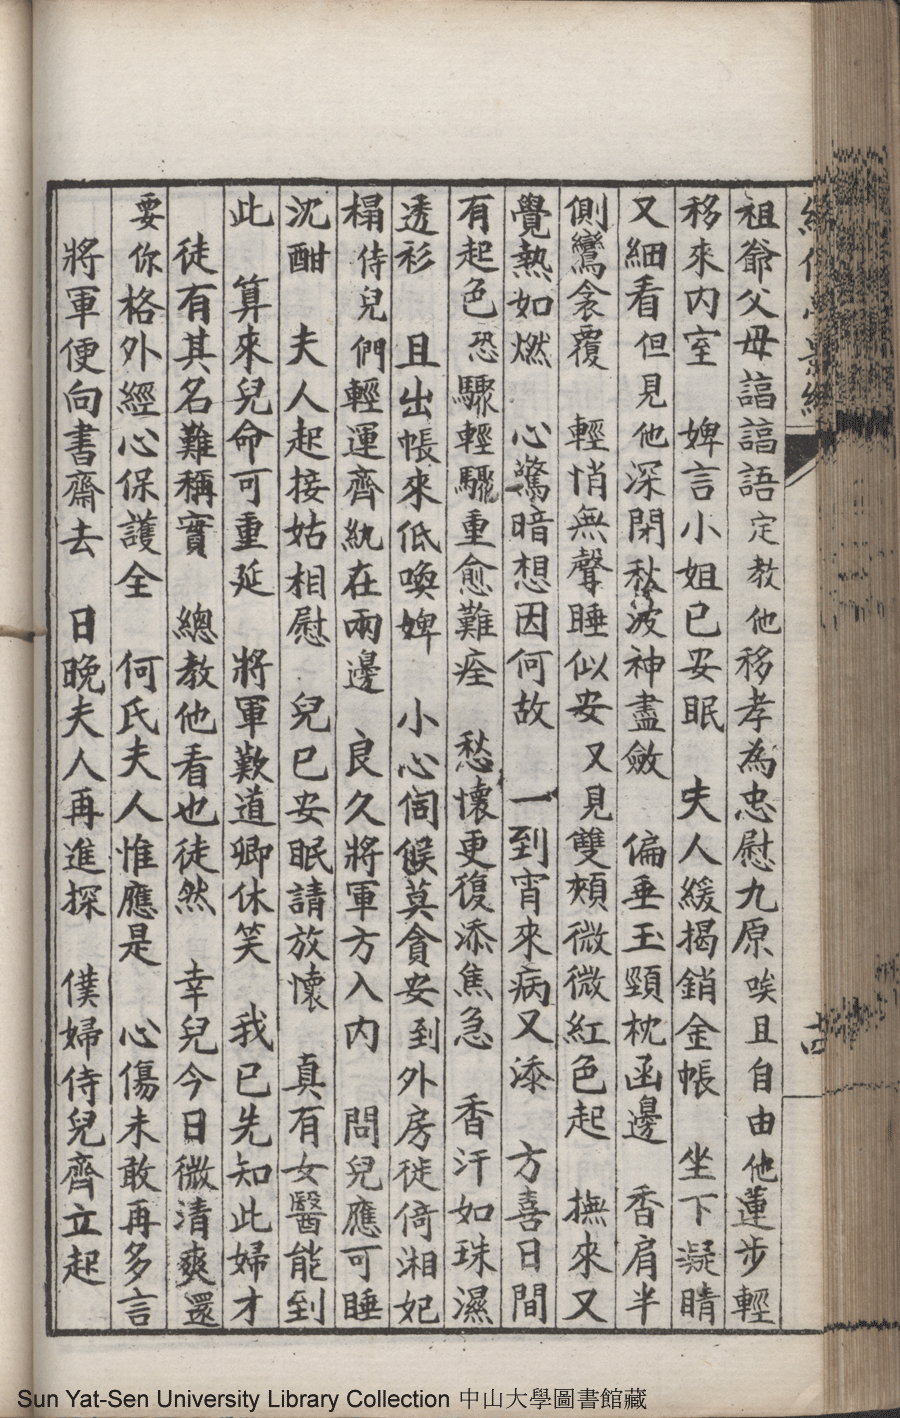 祖爺父母諄諄語定教他移孝為忠慰九原唉且自由他蓮步輕
移來內室 婢言小姐已安眠 夫人緩揭銷金帳 坐下凝睛
又細看但見他深閉秋波神盡斂 偏垂玉頸枕函邊 香肩半
側鸞衾覆 輕悄無聲睡似安又見雙頰微微紅色起 撫來又
覺熱如燃 心驚暗想因何故 一到宵來病又添 方喜日間
有起色恐驟輕驟重愈難痊 愁懷更復添焦急 香汗如珠濕
透衫 且出帳來低喚婢 小心伺候莫貪安到外房徙倚湘妃
榻侍兒們輕運齊紈在兩邊 良久將軍方入內 問兒應可睡
沈酣 夫人起接姑相慰 兒已安眠請放懷 真有女醫能到
此 算來兒命可重延 將軍歎道卿休笑 我已先知此婦才
徒有其名難稱實 總教他看也徒然 幸兒今日微清爽還
要你格外經心保護全 何氏夫人惟應是 心傷未敢再多言
將軍便向書齋去 日晚夫人再進探 僕婦侍兒齊立起
Sun Yat-Sen University Library Collection 中山大學圖書館藏